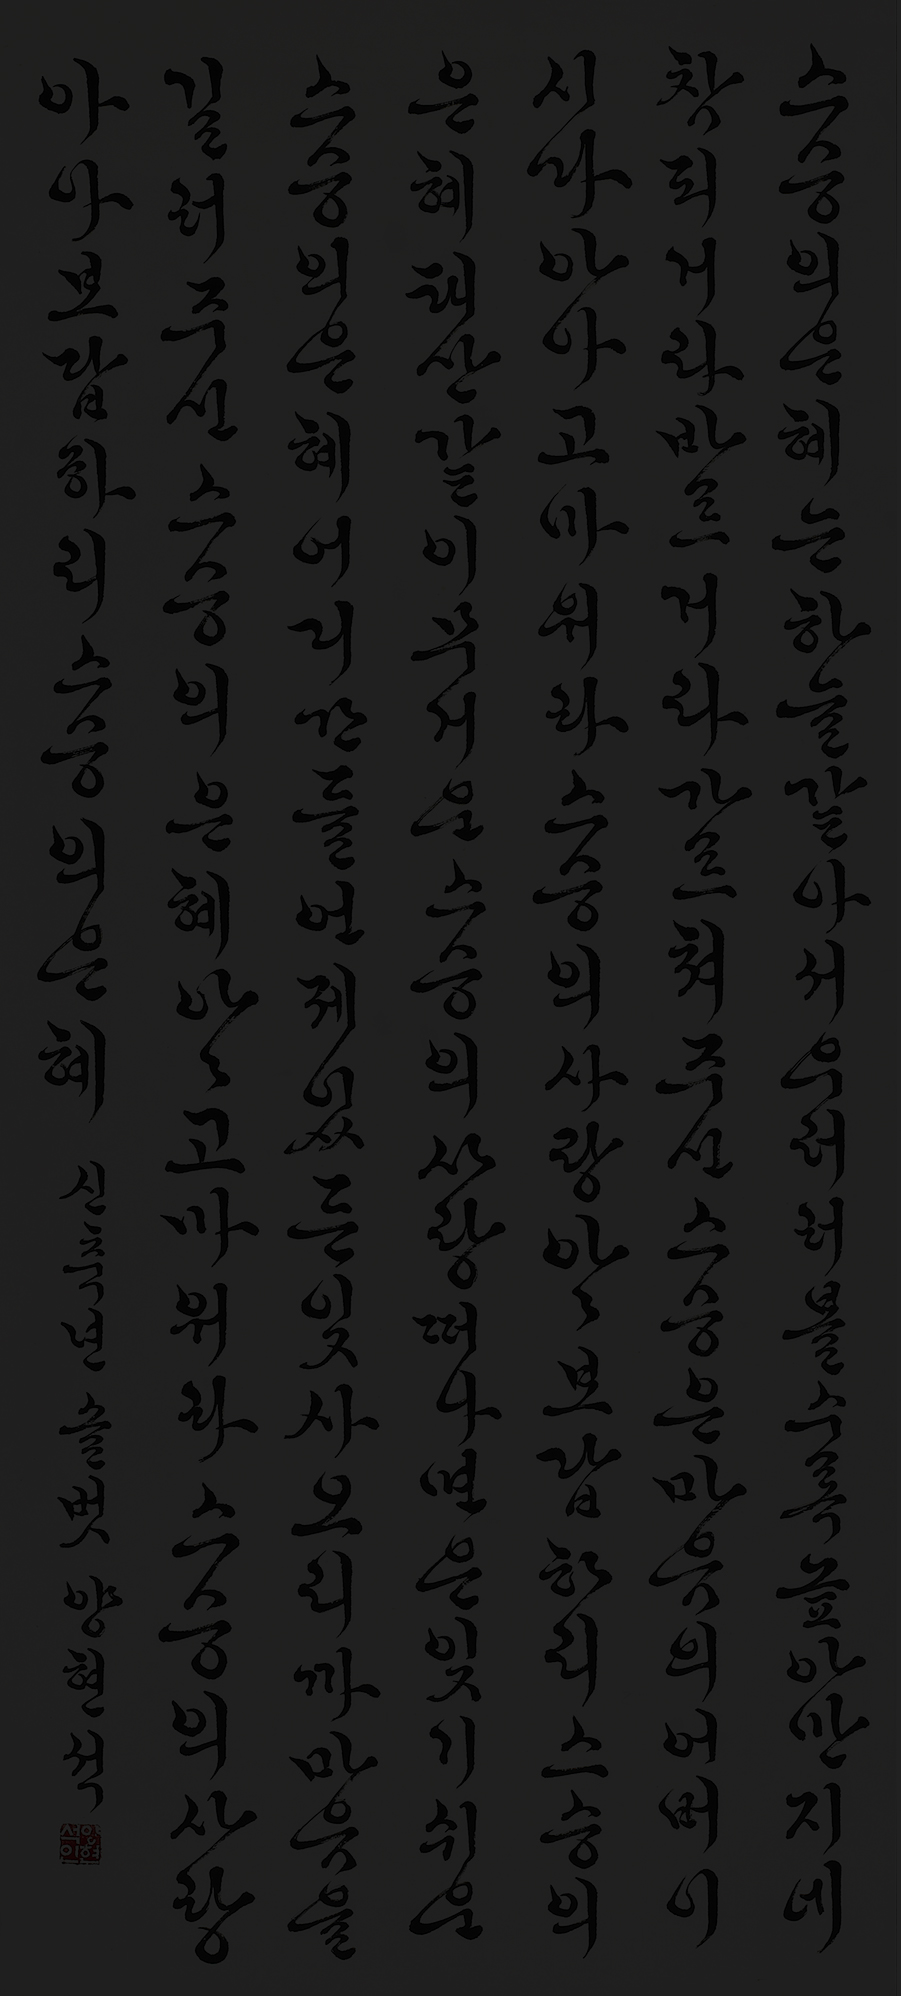 스승의은혜는하늘같아서우러러볼수록높아만지네
참되거라바르거라가르쳐주신스승은마음의어버이
시다아아고마워라스승의사랑아아보답하리스승의
은혜태산같이무거운스승의사랑떠나면은잊기쉬운
스승의은혜어디간들언제있든잊사오리까마음을
길러주신스승의은혜아아고마워라스승의사랑
아아보답하리스승의은혜 신축년 양현석
양현석인